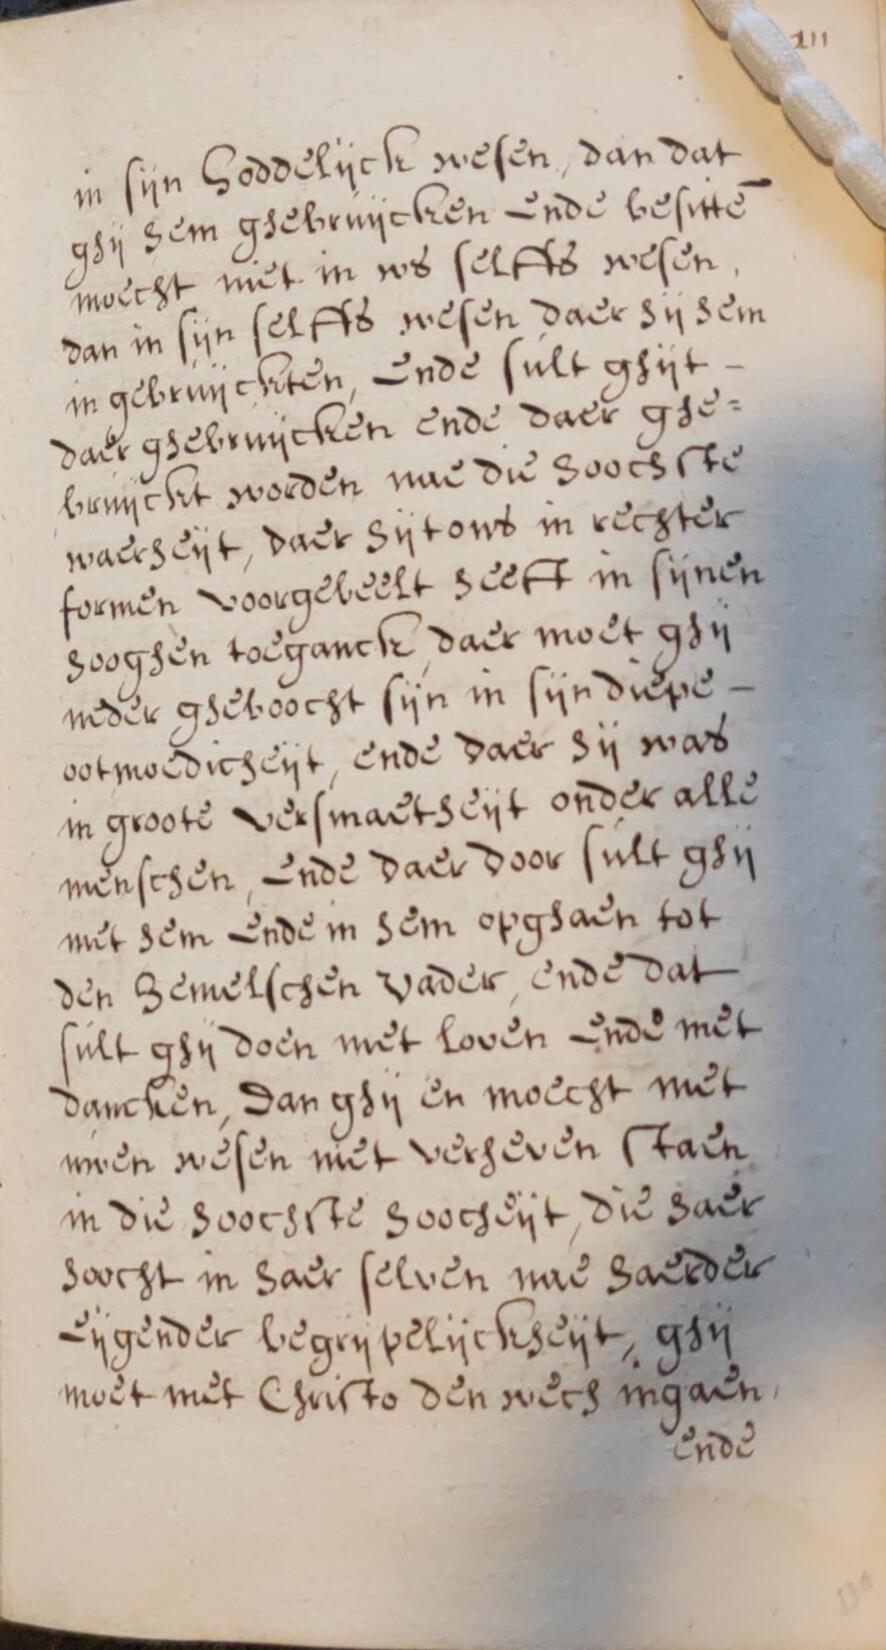 111
in sijn Goddelijck wesen, dan dat
ghij hem ghebruijcken Ende besittē
moecht niet in ws selffs wesen,
dan in sijn selffs wesen daer hij hem
in gebruijckten, Ende sult ghijt –
daer ghebruijcken ende daer ghe=
bruijckt worden nae die hoochste
waerheijt, daer hijt ons in rechter
formen voorgebeelt heefft in sijnen
hooghen toeganck, daer moet ghij
neder gheboocht sijn in sijn diepe –
ootmoedicheijt, ende daer hij was
in groote versmaetheijt onder alle
menschen, Ende daer door sult ghij
met hem Ende in hem opghaen tot
den hemelschen Vader, ende dat
sult ghij doen met loven Ende met
dancken, Dan ghij en moecht met
uwen wesen niet verheven staen
in die hoochste hoocheijt, die haer
hoocht in haer selven nae haerder
Eijgender begrijpelijckheijt, ghij
moet met Christo den wech ingaen,
ende